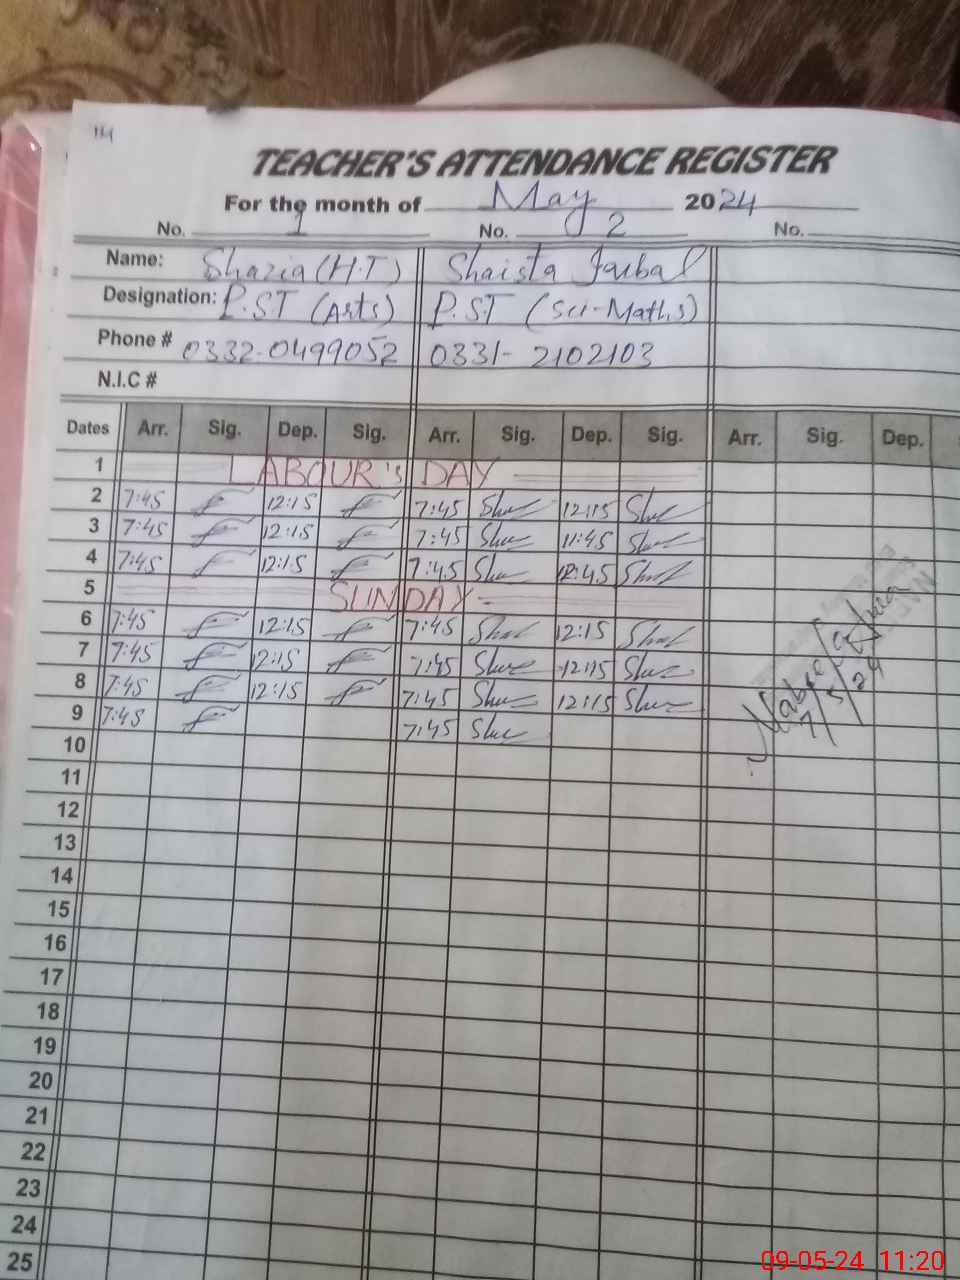 114
TEACHER'S ATTENDANCE REGISTER
For the month of May 2024
No. 1 No. 2 No.
Name: Shazia (H.T) Shaista
Designation: P.ST (Arts) P.ST (Sci-Maths)
Phone # 0332-0499052 0331-2102103
N.I.C #
Dates Arr. Sig. Dep. Sig. Arr. Sig. Dep. Sig. Arr. Sig. Dep.
1 LABOUR'S DAY
2 7:45 12:15 7:45 12:15
3 7:45 12:15 7:45 11:45
4 7:45 12:15 7:45 12:45
5 SUNDAY
6 7:45 12:15 7:45 12:15
7 7:45 12:15 7:45 12:15
8 7:45 12:15 7:45 12:15
9 7:45 7:45
10
11
12
13
14
15
16
17
18
19
20
21
22
23
24
25
7/5/24
09-05-24 11:20